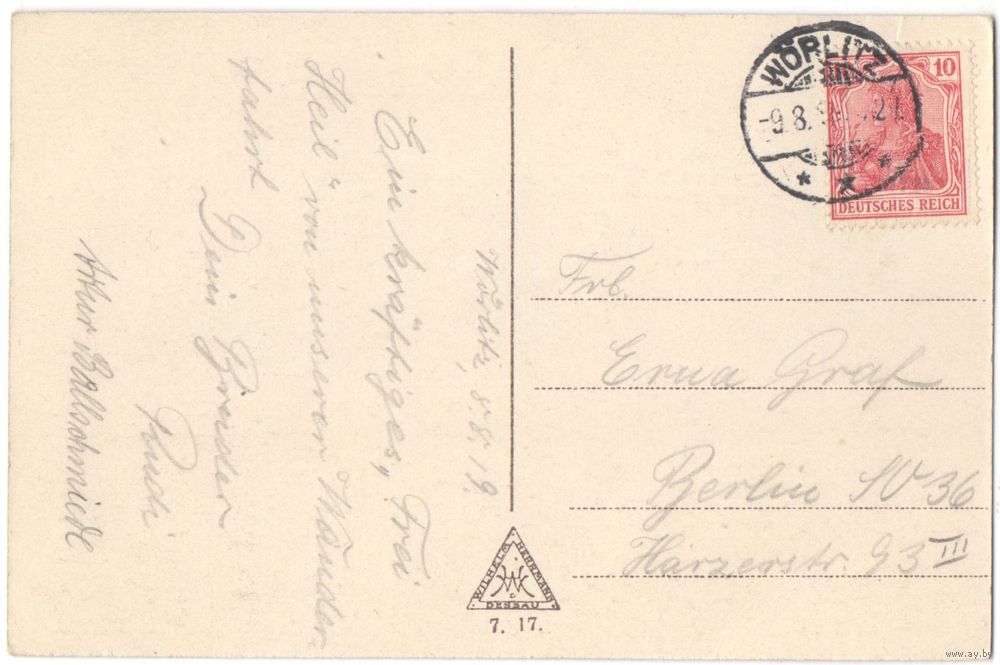 Wörlitz, 8.8.19.
Ein kräftiges „Frei
Heil“ von unserer Wander-
fahrt
Dein Bruder
Rudi
Artur Ballschmiedt
WÖRLITZ
-9.8.
10
DEUTSCHES REICH
Frl.
Erna Graf
Berlin SO 36
Harzerstr. 93 III
WILHELM HERRMANN
DESSAU
7. 17.
www.ay.by